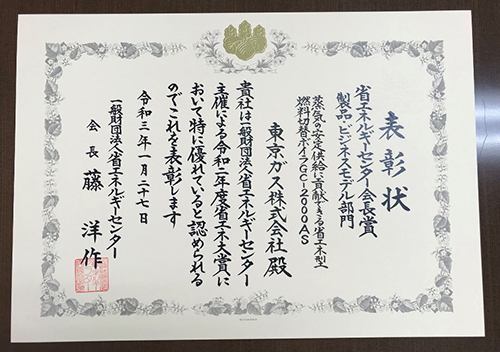 表彰状
省エネルギーセンター会長賞
製品・ビジネスモデル部門
蒸気の安定供給に貢献できる省エネ型
燃料切替ボイラGC-2000AS
東京ガス株式会社 殿
貴社は一般財団法人省エネルギーセンター
主催による令和二年度省エネ大賞に
おいて特に優れていると認められる
のでこれを表彰します
令和三年一月二十七日
一般財団法人省エネルギーセンター
会長 藤 洋作